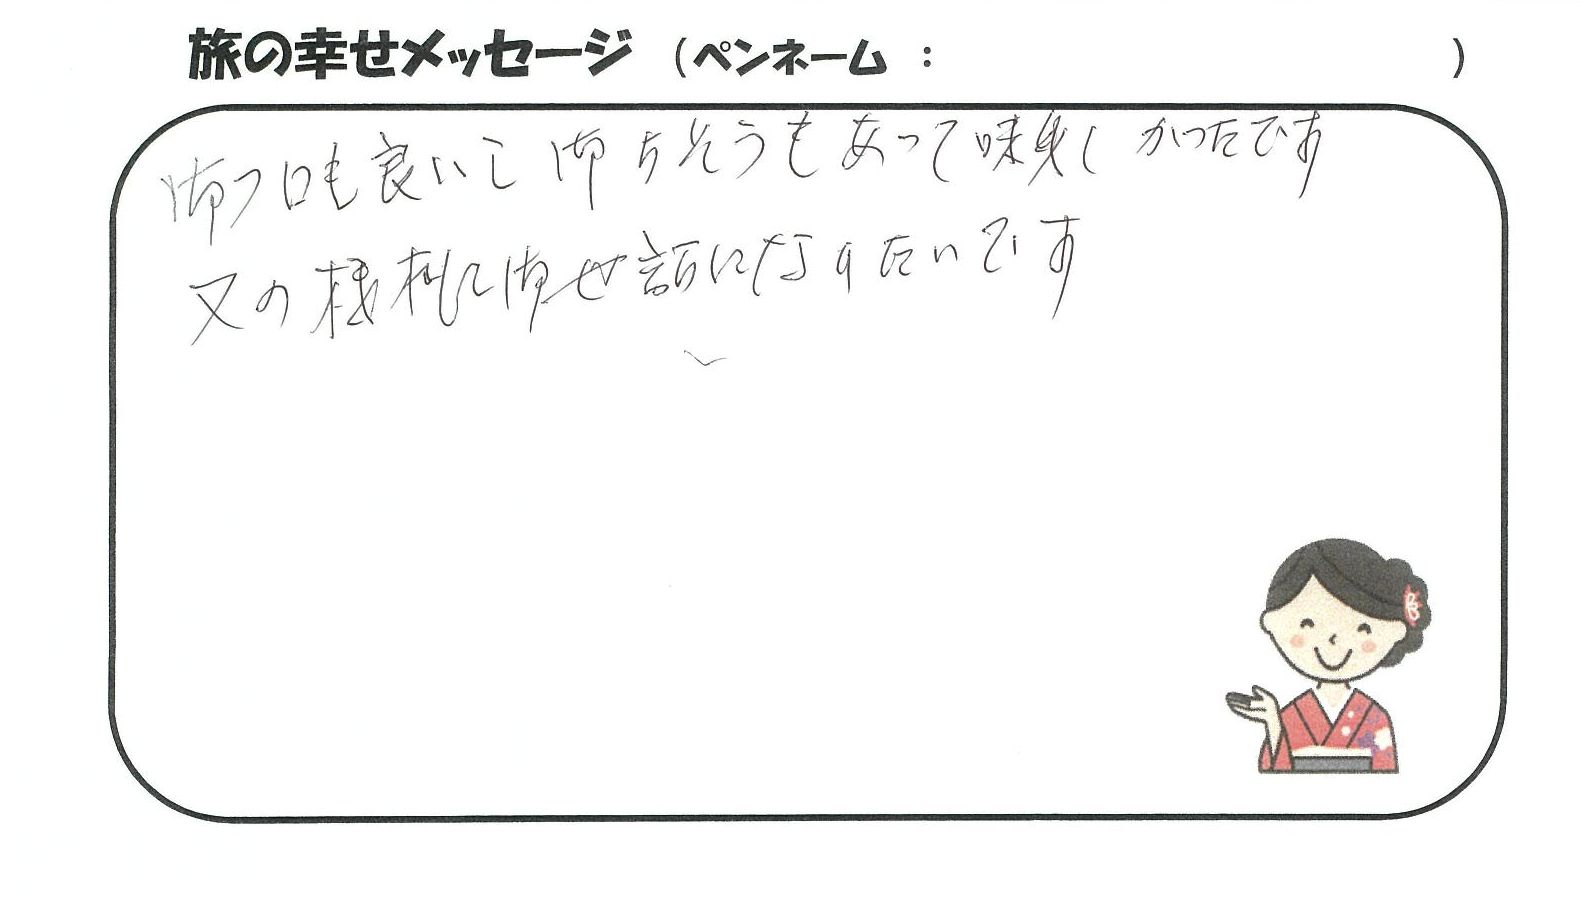 旅の幸せメッセージ (ペンネーム : )
御フロも良いし御ちそうもあって味しかったです
又の機札に御せ話になりたいです